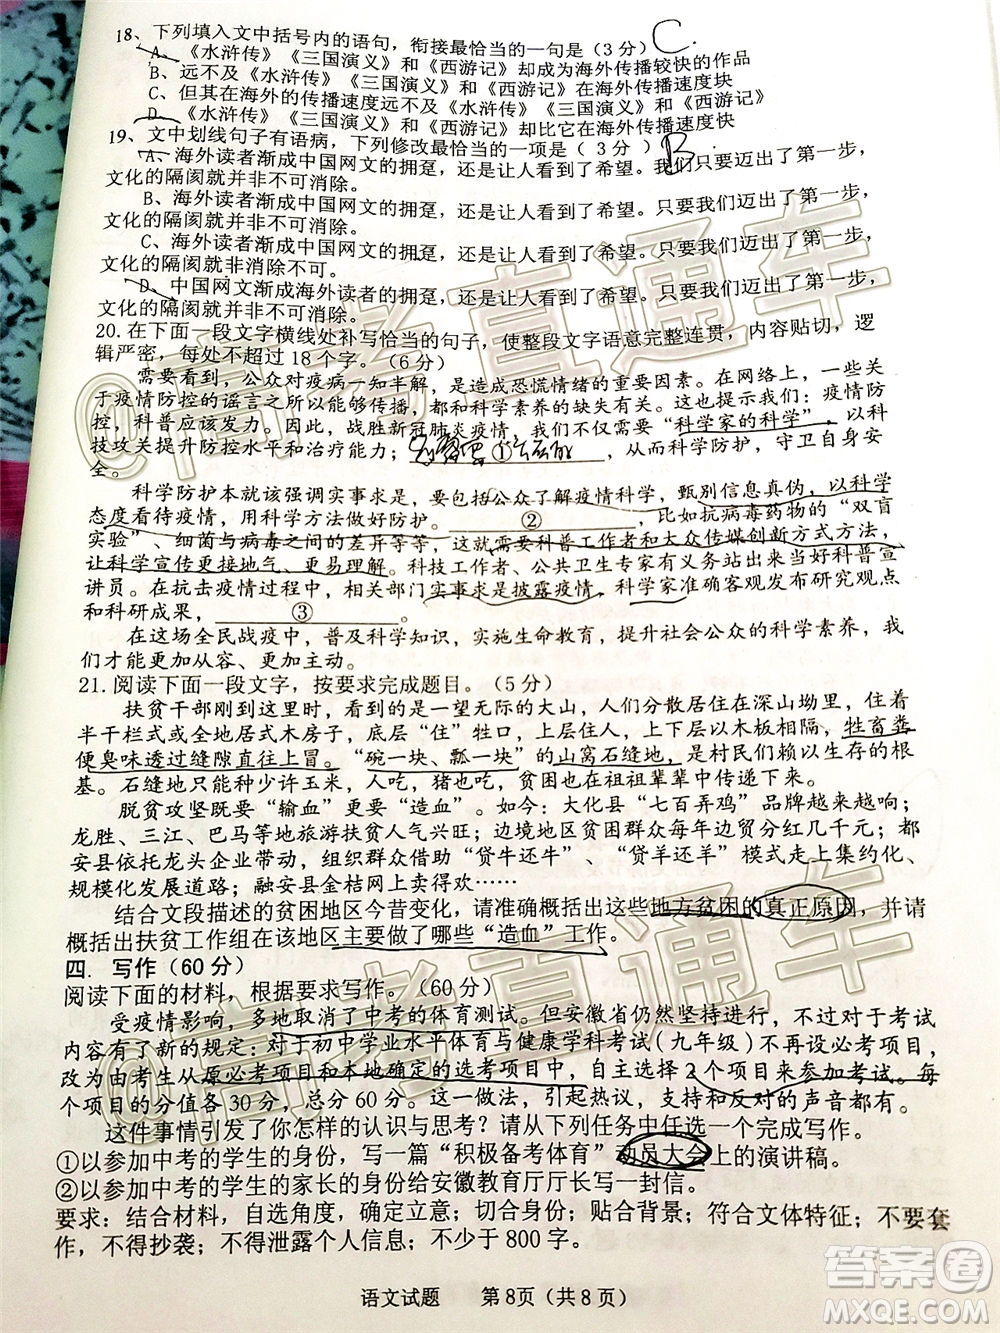 18、下列填入文中括号内的语句，衔接最恰当的一句是（3分） C.
A、《水浒传》《三国演义》和《西游记》却成为海外传播较快的作品
B、远不及《水浒传》《三国演义》和《西游记》在海外传播速度块
C、但其在海外的传播速度远不及《水浒传》《三国演义》和《西游记》
D、《水浒传》《三国演义》和《西游记》却比它在海外传播速度快
19、文中划线句子有语病，下列修改最恰当的一项是（ 3分 ） B
A、海外读者渐成中国网文的拥趸，还是让人看到了希望。我们只要迈出了第一步，
文化的隔阂就并非不可消除。
B、海外读者渐成中国网文的拥趸，还是让人看到了希望。只要我们迈出了第一步，
文化的隔阂就并非不可消除。
C、海外读者渐成中国网文的拥趸，还是让人看到了希望。只要我们迈出了第一步，
文化的隔阂就非消除不可。
D、中国网文渐成海外读者的拥趸，还是让人看到了希望。只要我们迈出了第一步，
文化的隔阂就并非不可消除。
20.在下面一段文字横线处补写恰当的句子，使整段文字语意完整连贯，内容贴切，逻
辑严密，每处不超过18个字。（6分）
需要看到，公众对疫病一知半解，是造成恐慌情绪的重要因素。在网络上，一些关
于疫情防控的谣言之所以能够传播，都和科学素养的缺失有关。这也提示我们：疫情防
控，科普应该发力。因此，战胜新冠肺炎疫情，我们不仅需要“科学家的科学”，以科
技攻关提升防控水平和治疗能力；①，从而科学防护，守卫自身安
全。
科学防护本就该强调实事求是，要包括公众了解疫情科学，甄别信息真伪，以科学
态度看待疫情，用科学方法做好防护。②，比如抗病毒药物的“双盲
实验”、细菌与病毒之间的差异等等，这就需要科普工作者和大众传媒创新方式方法，
让科学宣传更接地气、更易理解。科技工作者、公共卫生专家有义务站出来当好科普宣
讲员。在抗击疫情过程中，相关部门实事求是披露疫情，科学家准确客观发布研究数据
和科研成果，③。
在这场全民战疫中，普及科学知识，实施生命教育，提升社会公众的科学素养，我
们才能更加从容、更加主动。
21.阅读下面一段文字，按要求完成题目。（5分）
扶贫干部刚到这里时，看到的是一望无际的大山，人们分散居住在深山坳里，住着
半干栏式或全地居式木房子，底层“住”牲口，上层住人，上下层以木板相隔，牲畜粪
便臭味透过缝隙直往上冒。“碗一块、瓢一块”的山窝石缝地，是村民们赖以生存的根
基。石缝地只能种少许玉米，人吃，猪也吃，贫困在祖祖辈辈中传递着。
脱贫攻坚既要“输血”更要“造血”。如今：大化县“七百弄鸡”品牌越来越响；
龙胜、三江、巴马等地旅游扶贫人气兴旺；边境地区贫困群众每年边贸分红几千元；都
安县依托龙头企业带动，组织群众“贷牛还牛”、“贷羊还羊”模式走上集约化、
规模化发展道路；融安县金桔网上卖得欢……
结合文段描述的贫困地区今昔变化，请准确概括出这些地方贫困的真正原因，并请
概括出扶贫工作组在该地区主要做了哪些“造血”工作。
四．写作（60分）
阅读下面的材料，根据要求写作。（60分）
受疫情影响，多地取消了中考的体育测试。但安徽省仍然坚持进行，不过对于考试
内容有了新的规定：对于初中学业水平体育与健康学科考试（九年级）不再设必考项目，
改为由考生从原必考项目和本地确定的选考项目中，自主选择2个项目来参加考试。每
个项目的分值各30分，总分60分。此政策一出，引起热议，支持和反对的声音都有。
这件事情引发了你怎样的认识与思考？请从下列任务中任选一个完成写作。
①以参加中考的学生的身份，写一篇“积极备考体育”动员大会上的演讲稿。
②以参加中考的学生的家长的身份给安徽教育厅厅长写一封信。
要求：结合材料，自选角度，确定立意；切合身份，贴合背景；符合文体特征；不要套
作，不得抄袭；不得泄露个人信息；不少于800字。
语文试题 第8页（共8页）
@高考直通车
@高考直通车
答案圈
MXQE.COM